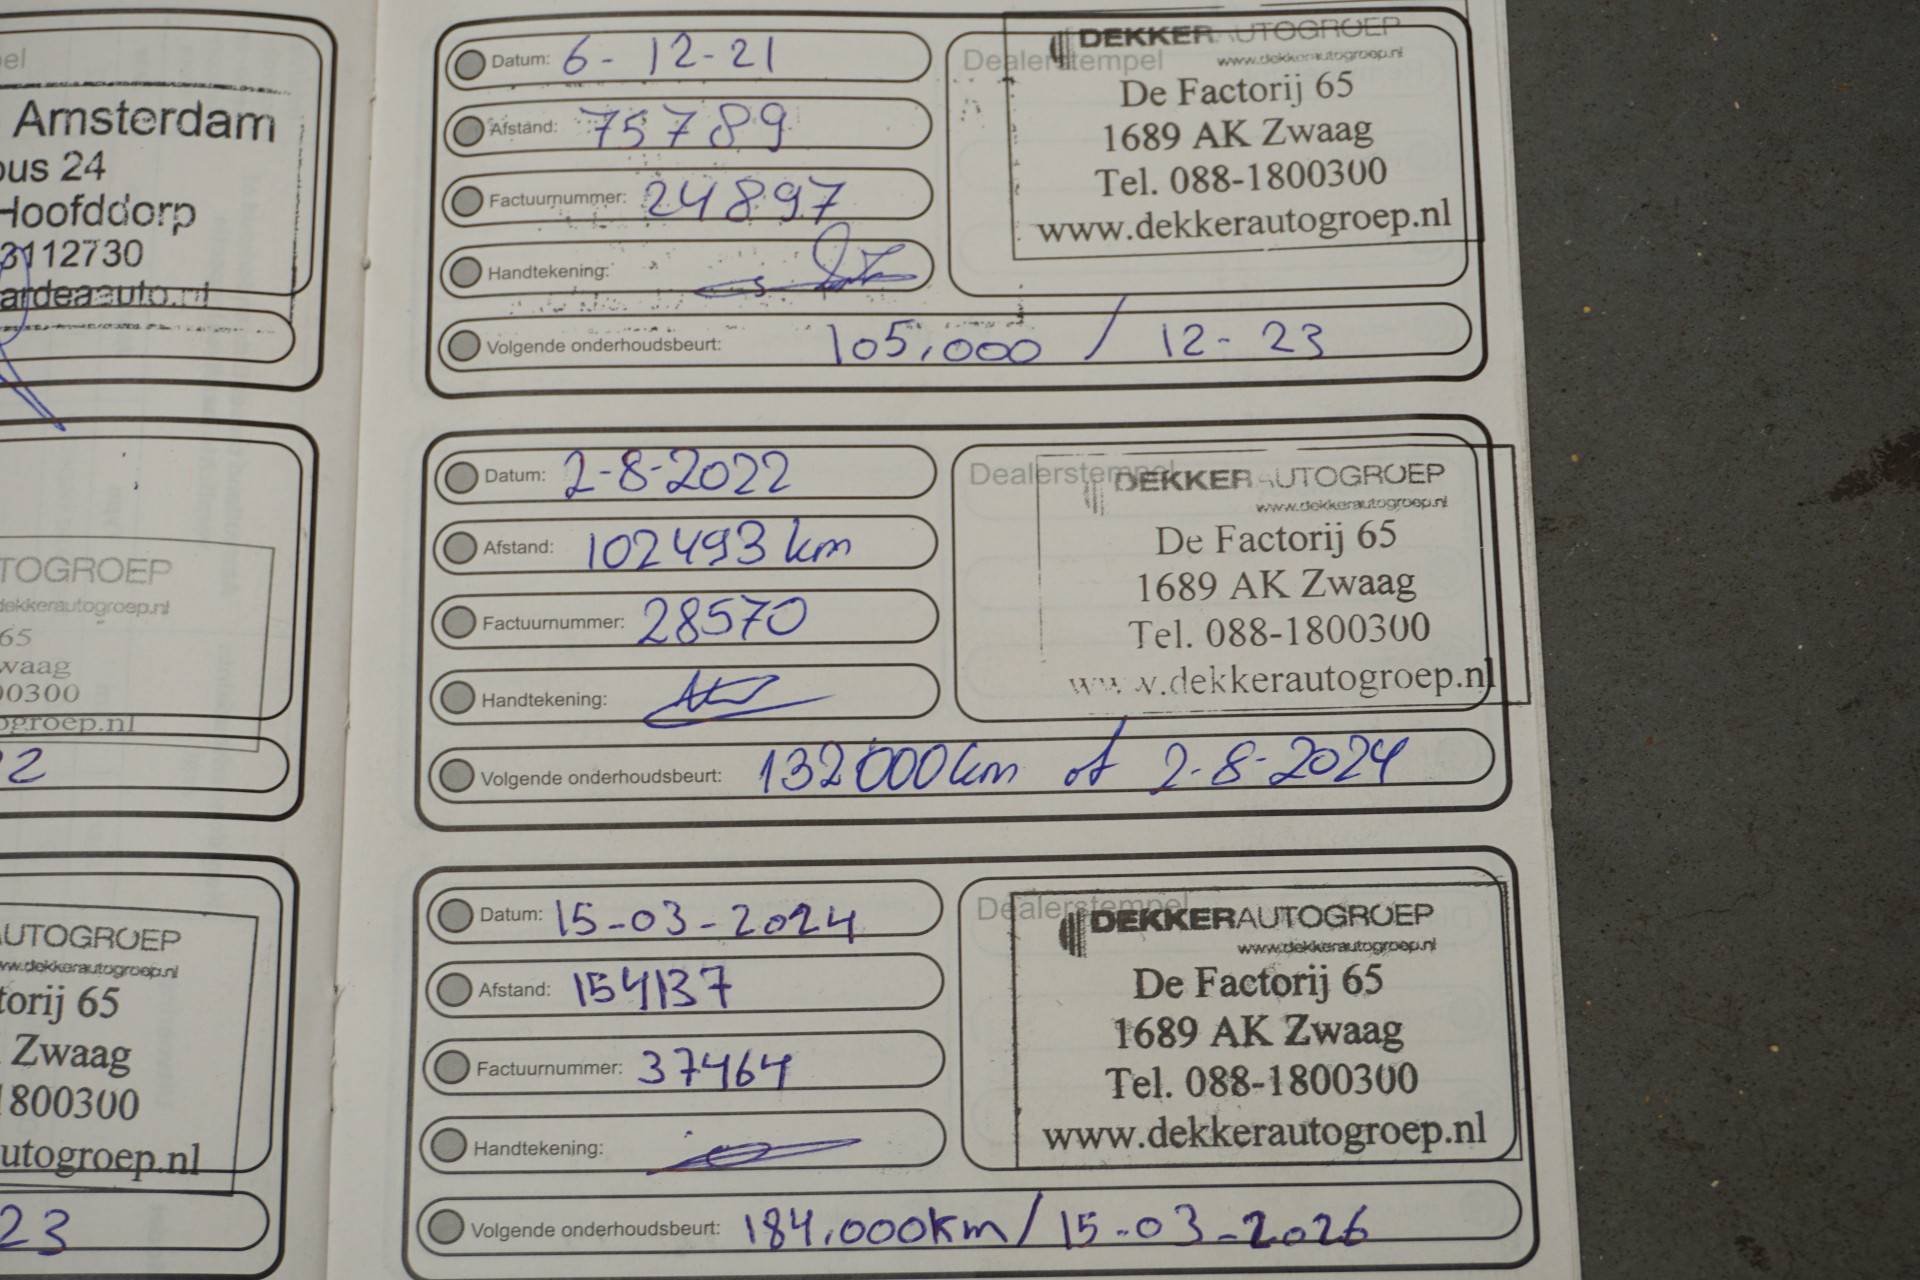 el
Amsterdam
us 24
Hoofddorp
3112730
ardeaauto.nl
TOGROEP
dekkerautogroep.nl
65
waag
00300
ogroep.nl
2
AUTOGROEP
www.dekkerautogroep.nl
torij 65
Zwaag
1800300
utogroep.nl
23
Datum: 6-12-21
Afstand: 75789
Factuurnummer: 24897
Handtekening:
Volgende onderhoudsbeurt: 105.000 / 12-23
Dealerstempel
DEKKERAUTOGROEP
www.dekkerautogroep.nl
De Factorij 65
1689 AK Zwaag
Tel. 088-1800300
www.dekkerautogroep.nl
Datum: 2-8-2022
Afstand: 102493 km
Factuurnummer: 28570
Handtekening:
Volgende onderhoudsbeurt: 132000km of 2-8-2024
Dealerstempel
DEKKERAUTOGROEP
www.dekkerautogroep.nl
De Factorij 65
1689 AK Zwaag
Tel. 088-1800300
www.dekkerautogroep.nl
Datum: 15-03-2024
Afstand: 154137
Factuurnummer: 37464
Handtekening:
Volgende onderhoudsbeurt: 184.000km/15-03-2026
Dealerstempel
DEKKERAUTOGROEP
www.dekkerautogroep.nl
De Factorij 65
1689 AK Zwaag
Tel. 088-1800300
www.dekkerautogroep.nl